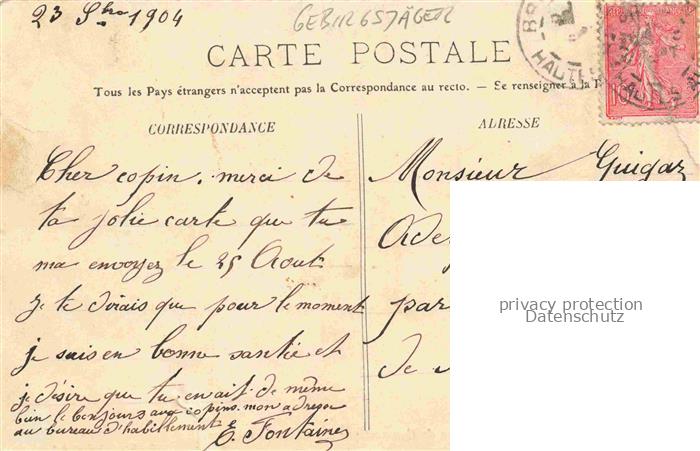 23 Sbre 1904
GEBIRGSJÄGER
CARTE POSTALE
Tous les Pays étrangers n'acceptent pas la Correspondance au recto. — Se renseigner à la
CORRESPONDANCE
Cher copin. merci de
ta jolie carte que tu
ma envoyez le 25 Aout
je te dirais que pour le moment
je suis en bonne santié et
je désire que tu en ait de même
bien le bonjours aux copins. mon adresse
au bureau d'habillement
E. Fontaine
ADRESSE
Monsieur Guigaz
par
de
HAUTES
10
privacy protection
Datenschutz